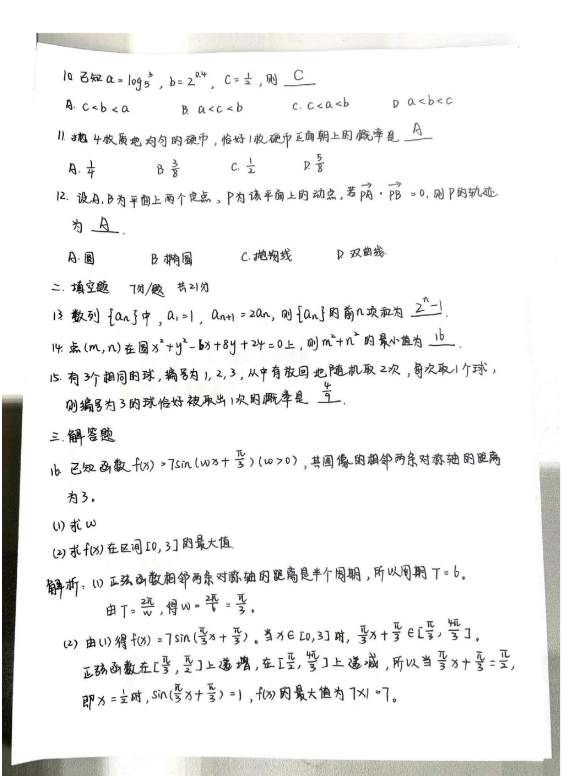 10. 已知 a = log₅3, b = 2^0.4, c = 1/2, 则 C
A. c<b<a B. a<c<b C. c<a<b D a<b<c
11. 抛 4枚质地均匀的硬币, 恰好1枚硬币正面朝上的概率是 A
A. 1/4 B 3/8 C. 1/2 D. 5/8
12. 设A, B为平面上两个定点, P为该平面上的动点, 若 PA→ · PB→ = 0, 则P的轨迹
为 A.
A. 圆 B 椭圆 C. 抛物线 D 双曲线.
二. 填空题 7分/题 共21分
13 数列 {an} 中, a₁=1, an+1 = 2an, 则{an}的前n项和为 2^n-1.
14. 点(m, n)在圆 x²+y²-6x+8y+24=0上, 则 m²+n² 的最小值为 16.
15. 有3个相同的球, 编号为1, 2, 3, 从中有放回地随机取2次, 每次取1个球,
则编号为3的球恰好被取出1次的概率是 4/9.
三. 解答题
16 已知函数 f(x) = 7sin(wx+π/3)(w>0), 其图像的相邻两条对称轴的距离
为3。
(1) 求w
(2) 求f(x)在区间[0, 3]的最大值
解析: (1) 正弦函数相邻两条对称轴的距离是半个周期, 所以周期 T=6。
由T=2π/w, 得w=2π/6=π/3。
(2) 由(1)得 f(x) = 7sin(π/3x+π/3)。当 x∈[0,3]时, π/3x+π/3∈[π/3, 4π/3]。
正弦函数在[π/3, π/2]上递增, 在[π/2, 4π/3]上递减, 所以当π/3x+π/3=π/2,
即 x=1/2时, sin(π/3x+π/3)=1, f(x)的最大值为7×1=7。